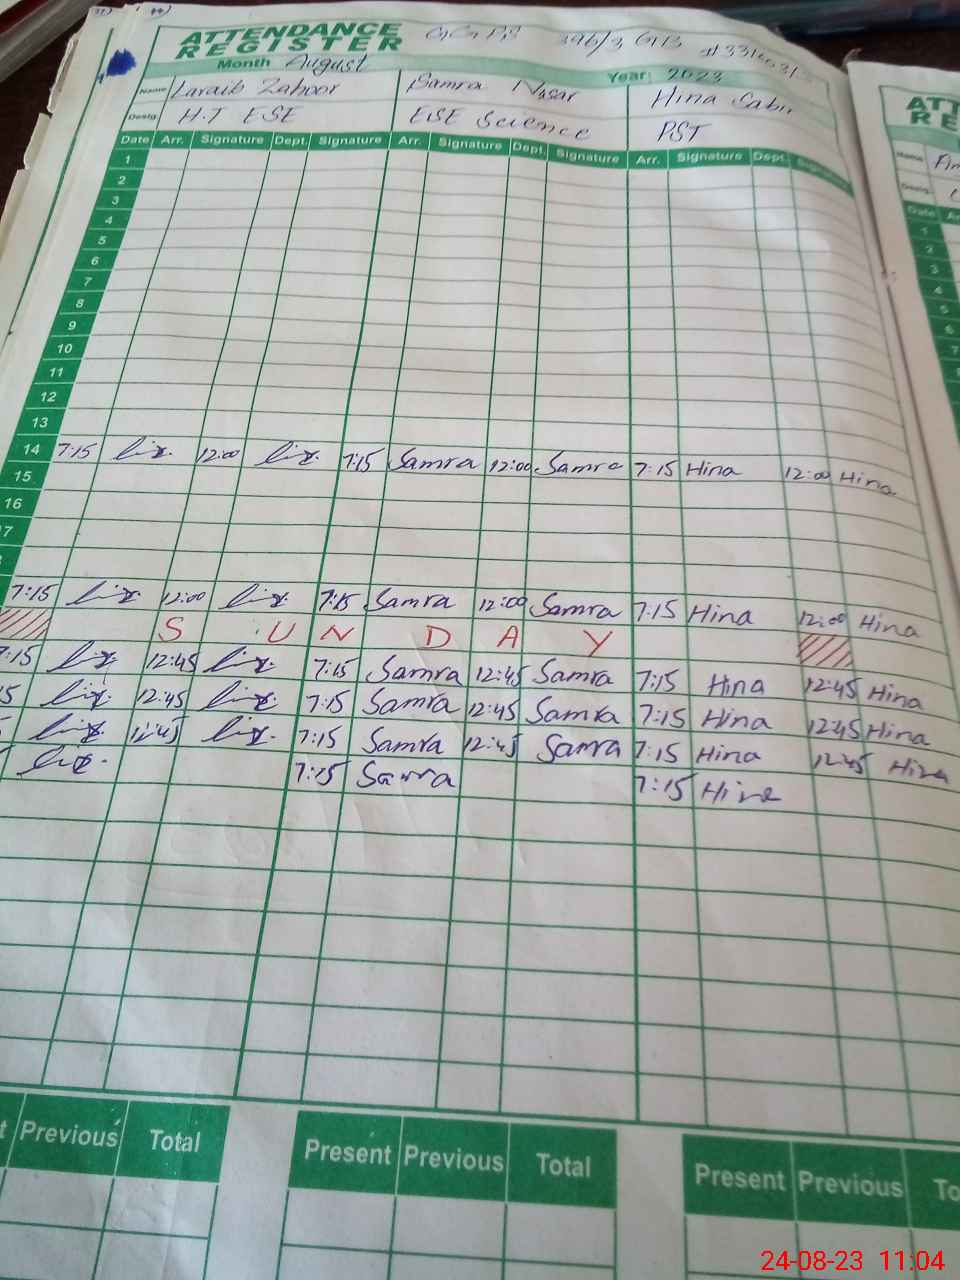 ATTENDANCE
REGISTER
396/3 G/B
Month August Year: 2023
Name Laraib Zahoor Samra Nasar Hina Sabir
Desig. H.T ESE ESE Science PST
Date Arr. Signature Dept. Signature Arr. Signature Dept. Signature Arr. Signature Dept. Signature
1
2
3
4
5
6
7
8
9
10
11
12
13
14 7:15 12:00 7:15 Samra 12:00 Samra 7:15 Hina 12:00 Hina
15
16
7:15 12:00 7:15 Samra 12:00 Samra 7:15 Hina 12:00 Hina
S U N D A Y
7:15 12:45 7:15 Samra 12:45 Samra 7:15 Hina 12:45 Hina
12:45 7:15 Samra 12:45 Samra 7:15 Hina 12:45 Hina
12:45 7:15 Samra 12:45 Samra 7:15 Hina 12:45 Hina
7:15 Samra 7:15 Hina
Previous Total Present Previous Total Present Previous To
AT
RE
Name
Desig.
Date
1
2
3
4
5
6
7
24-08-23 11:04